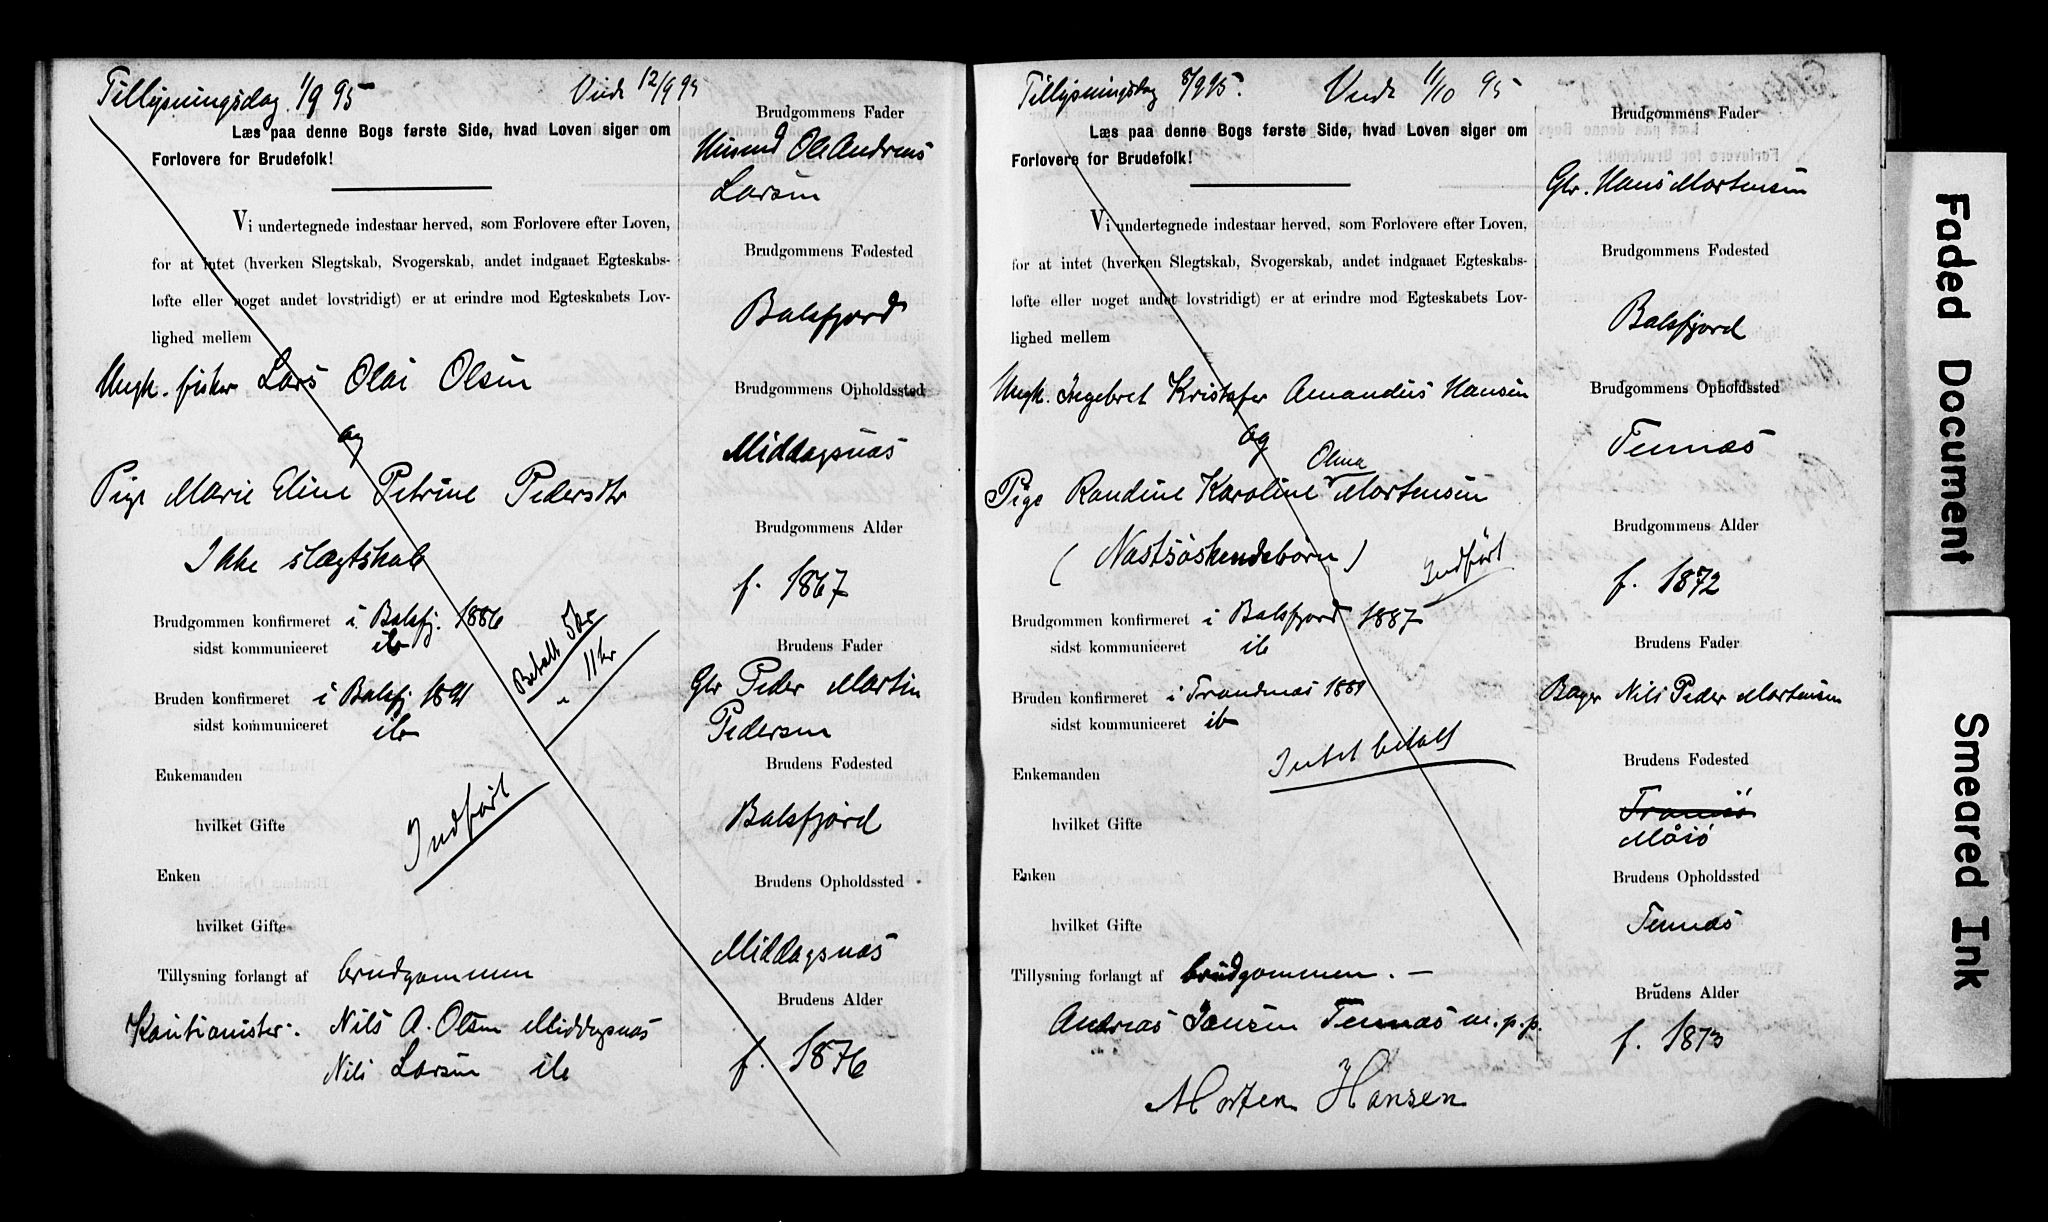 Tillysningsdag 1/9 95 Viede 12/9 95
Læs paa denne Bogs første Side, hvad Loven siger om
Forlovere for Brudefolk!
Vi undertegnede indestaar herved, som Forlovere efter Loven,
for at intet (hverken Slegtskab, Svogerskab, andet indgaaet Egteskabs-
løfte eller noget andet lovstridigt) er at erindre mod Egteskabets Lov-
lighed mellem
Ungk. fisker Lars Olai Olsen
og
Pige Marie Eline Petrine Pedersdtr
Ikke slægtskab
Brudgommen konfirmeret i Balsfj. 1886
sidst kommuniceret ib
Bruden konfirmeret i Balsfj 1891
sidst kommuniceret ib
Betalt 5 kr
" 11 kr
Enkemanden
hvilket Gifte
Indført
Enken
hvilket Gifte
Tillysning forlangt af brudgommen
Kautionister: Nils A. Olsen Middagsnæs
Nils Larsen ib
Brudgommens Fader
Husmd Ole Andreas
Larsen
Brudgommens Fødested
Balsfjord
Brudgommens Opholdssted
Middagsnæs
Brudgommens Alder
f. 1867
Brudens Fader
Gbr Peder Martin
Pedersen
Brudens Fødested
Balsfjord
Brudens Opholdssted
Middagsnæs
Brudens Alder
f. 1876
Tillysningsdag 8/9 95. Viede 11/10 95
Læs paa denne Bogs første Side, hvad Loven siger om
Forlovere for Brudefolk!
Vi undertegnede indestaar herved, som Forlovere efter Loven,
for at intet (hverken Slegtskab, Svogerskab, andet indgaaet Egteskabs-
løfte eller noget andet lovstridigt) er at erindre mod Egteskabets Lov-
lighed mellem
Ungk. Ingebret Kristofer Amandus Hansen
og
Olma
Pige Randine Karoline Mortensen
(Næstsøskendebørn) Indført
Brudgommen konfirmeret i Balsfjord 1887
sidst kommuniceret ib
Bruden konfirmeret i Trondenæs 1889
sidst kommuniceret ib
Intet betalt
Enkemanden
hvilket Gifte
Enken
hvilket Gifte
Tillysning forlangt af brudgommen. —
Andreas Jensen Tennæs m. p. p.
Morten Hansen
Brudgommens Fader
Gbr. Hans Mortensen
Brudgommens Fødested
Balsfjord
Brudgommens Opholdssted
Tennæs
Brudgommens Alder
f. 1872
Brudens Fader
Bager Nils Peder Mortensen
Brudens Fødested
Tromsø
Måsø
Brudens Opholdssted
Tennæs
Brudens Alder
f. 1873
Faded Document
Smeared Ink